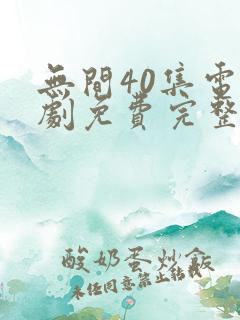 無間40集電
劇免費完整
酸奶蛋炒飯
未经同意禁止转载